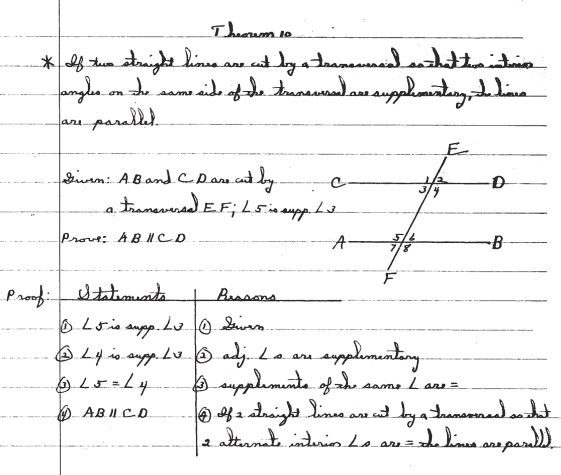 Theorem 10
* If two straight lines are cut by a transversal so that two interior
angles on the same side of the transversal are supplementary, the lines
are parallel.
E
Given: AB and CD are cut by
C 1 2 D
3 4
a transversal EF; ∠5 is supp. ∠3
Prove: AB || CD
A 5 6 B
7 8
F
Proof: Statements Reasons
① ∠5 is supp. ∠3 ① Given
② ∠4 is supp. ∠3 ② adj. ∠s are supplementary
③ ∠5 = ∠4 ③ supplements of the same ∠ are =
④ AB || CD ④ If 2 straight lines are cut by a transversal so that
2 alternate interior ∠s are = the lines are parallel.